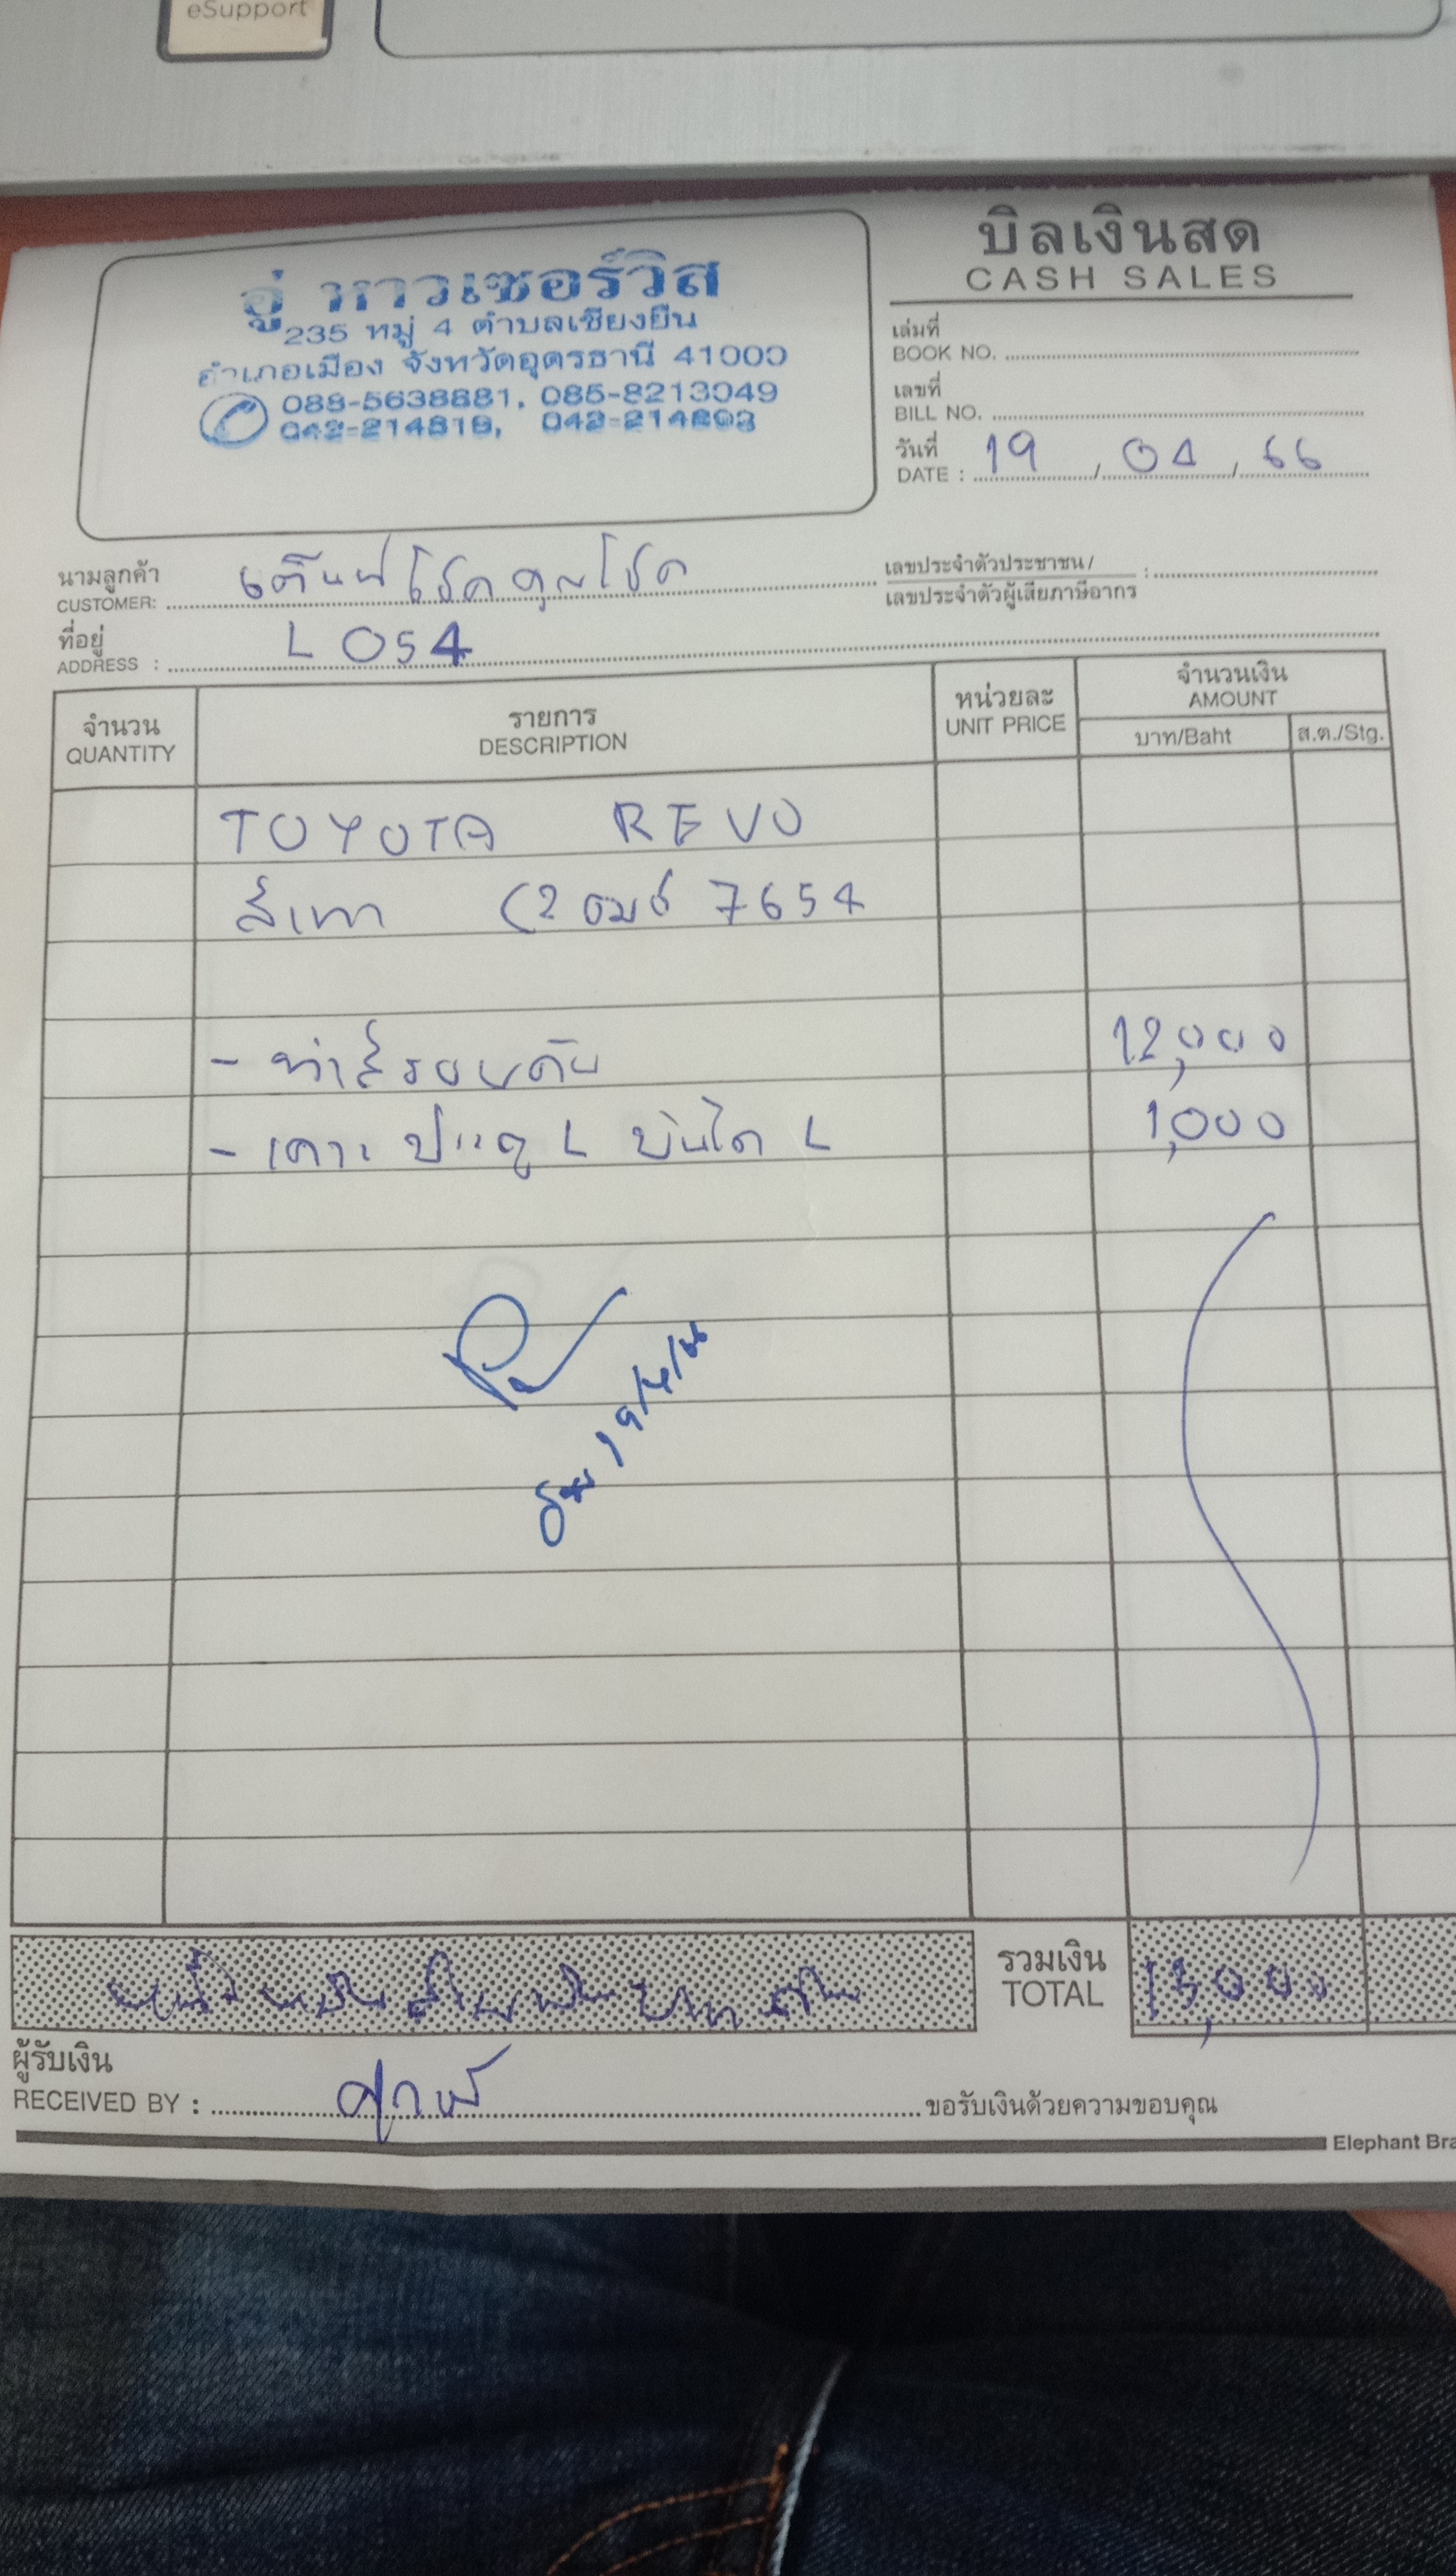 eSupport
บิลเงินสด
CASH SALES
อู่ หาวเซอร์วิส
235 หมู่ 4 ตำบลเชียงยืน
อำเภอเมือง จังหวัดอุดรธานี 41000
085-8213049
เล่มที่
BOOK NO.
เลขที่
BILL NO.
วันที่
DATE : 19 / 04 / 66
นามลูกค้า
CUSTOMER: เต็นท์โชคคุณโชค
เลขประจำตัวประชาชน /
เลขประจำตัวผู้เสียภาษีอากร :
ที่อยู่
ADDRESS : L 054
จำนวน
QUANTITY
รายการ
DESCRIPTION
หน่วยละ
UNIT PRICE
จำนวนเงิน
AMOUNT
บาท/Baht
ส.ต./Stg.
TOYOTA REVO
สีเทา 7654
- ทำสีรอบคัน 12,000
- เคาะ ประตู L บันได L 1,000
19/4/66
หนึ่งหมื่นสามพันบาทถ้วน
รวมเงิน
TOTAL
13,000
ผู้รับเงิน
RECEIVED BY :
ขอรับเงินด้วยความขอบคุณ
Elephant Bra